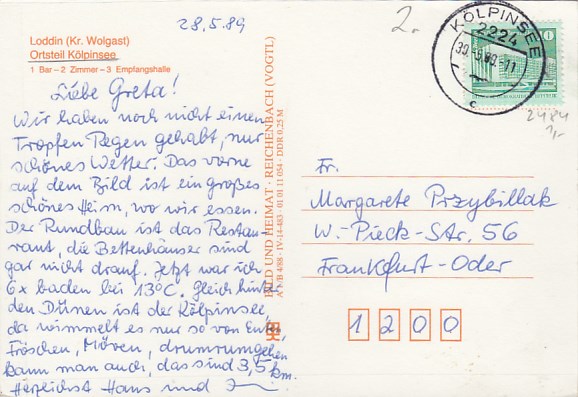 28.5.89
2.
Loddin (Kr. Wolgast)
Ortsteil Kölpinsee
1 Bar – 2 Zimmer – 3 Empfangshalle
Liebe Greta!
Wir haben noch nicht einen
Tropfen Regen gehabt, nur
schönes Wetter. Das vorne
auf dem Bild ist ein großes
schönes Heim, wo wir essen.
Der Rundbau ist das Restau-
rant, die Bettenhäuser sind
gar nicht drauf. Jetzt war ich
6x baden bei 13°C. Gleich hinter
den Dünen ist der Kölpinsee,
da wimmelt es nur so von Enten,
Fröschen, Möven, drumrumgehen
kann man auch, das sind 3,5 km.
Herzlichst Hans und
BILD UND HEIMAT · REICHENBACH (VOGTL)
A 1/B 4/88 · IV-14-483 · 01 10 11 054 · DDR 0,25 M
KÖLPINSEE
2224
30.-5.89.-11
c
10
2484
1,-
Fr.
Margarete Przybillak
W.-Pieck-Str. 56
Frankfurt-Oder
1200